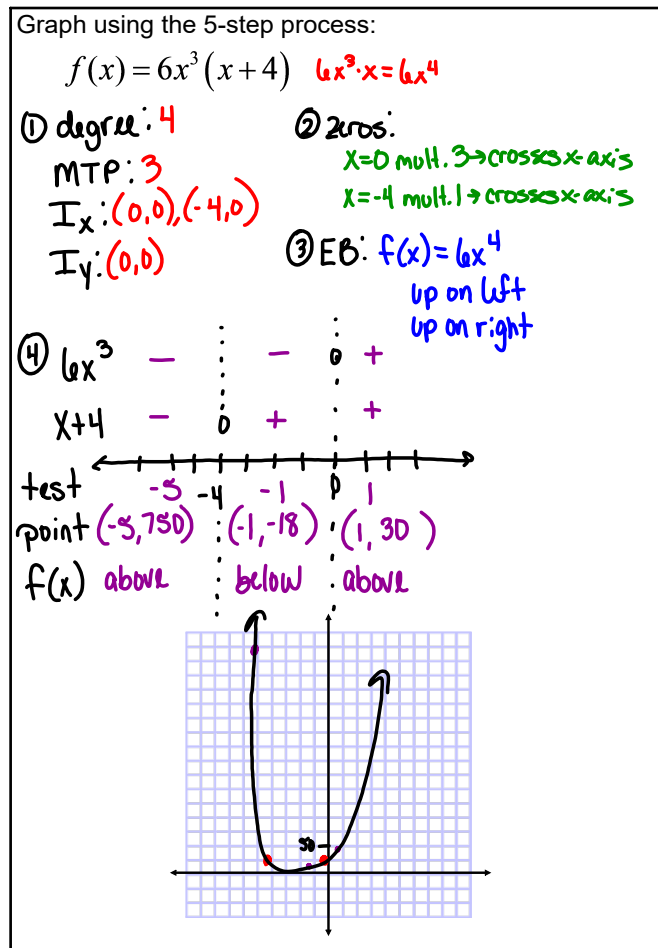 Graph using the 5-step process:
f(x) = 6x³(x+4) 6x³·x=6x⁴
① degree: 4
MTP: 3
Iₓ: (0,0),(-4,0)
Iy: (0,0)
② zeros:
x=0 mult. 3→crosses x-axis
x=-4 mult. 1→crosses x-axis
③ EB: f(x)=6x⁴
up on left
up on right
④ 6x³ − − 0 +
x+4 − 0 + +
test -5 -4 -1 0 1
point (-5,750) (-1,-18) (1, 30 )
f(x) above below above
50